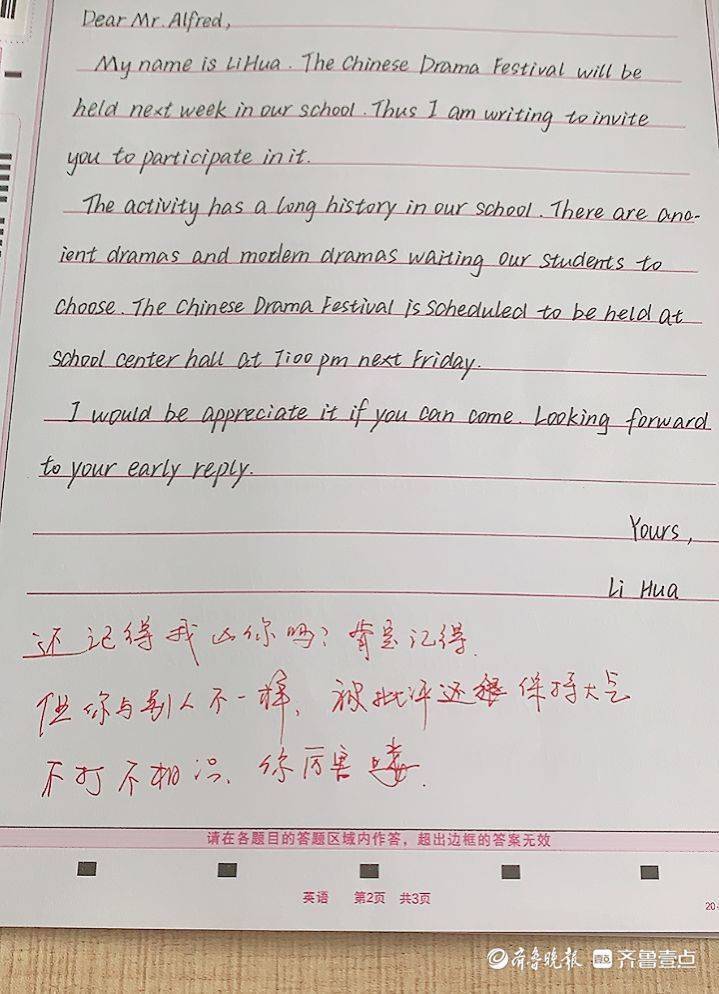 Dear Mr. Alfred,
My name is LiHua. The Chinese Drama Festival will be
held next week in our school. Thus I am writing to invite
you to participate in it.
The activity has a long history in our school. There are anc-
ient dramas and modern dramas waiting our students to
choose. The Chinese Drama Festival is scheduled to be held at
school center hall at 7:00 pm next Friday.
I would be appreciate it if you can come. Looking forward
to your early reply.
Yours,
Li Hua
还记得我凶你吗?肯定记得.
但你与别人不一样,被批评还很保持大气
不打不相识、你厉害喽.
请在各题目的答题区域内作答，超出边框的答案无效
英语 第2页 共3页
20-
齐鲁晚报 齐鲁壹点